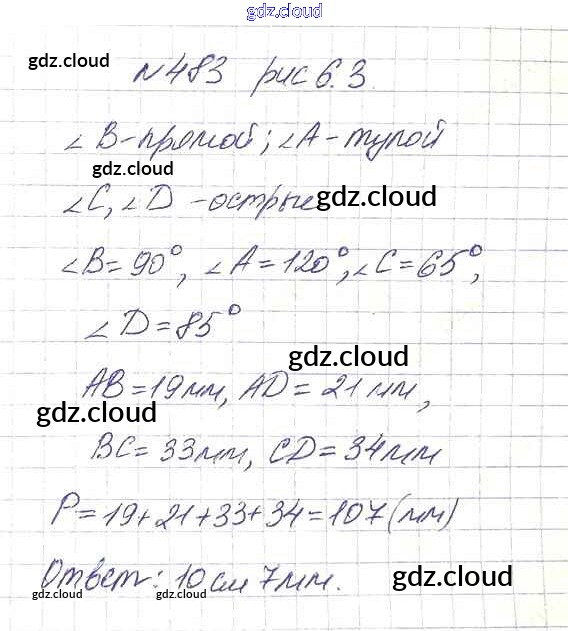 gdz.cloud
gdz.cloud
gdz.cloud
N 483 рис 6.3
∠B-прямой; ∠A-тупой
gdz.cloud
∠C, ∠D -острые
gdz.cloud
∠B=90°, ∠A=120°, ∠C=65°,
∠D=85°
gdz.cloud
AB=19мм, AD=21мм,
gdz.cloud
BC=33мм, CD=34мм
P=19+21+33+34=107(мм)
Ответ: 10см 7мм.
gdz.cloud
gdz.cloud
gdz.cloud